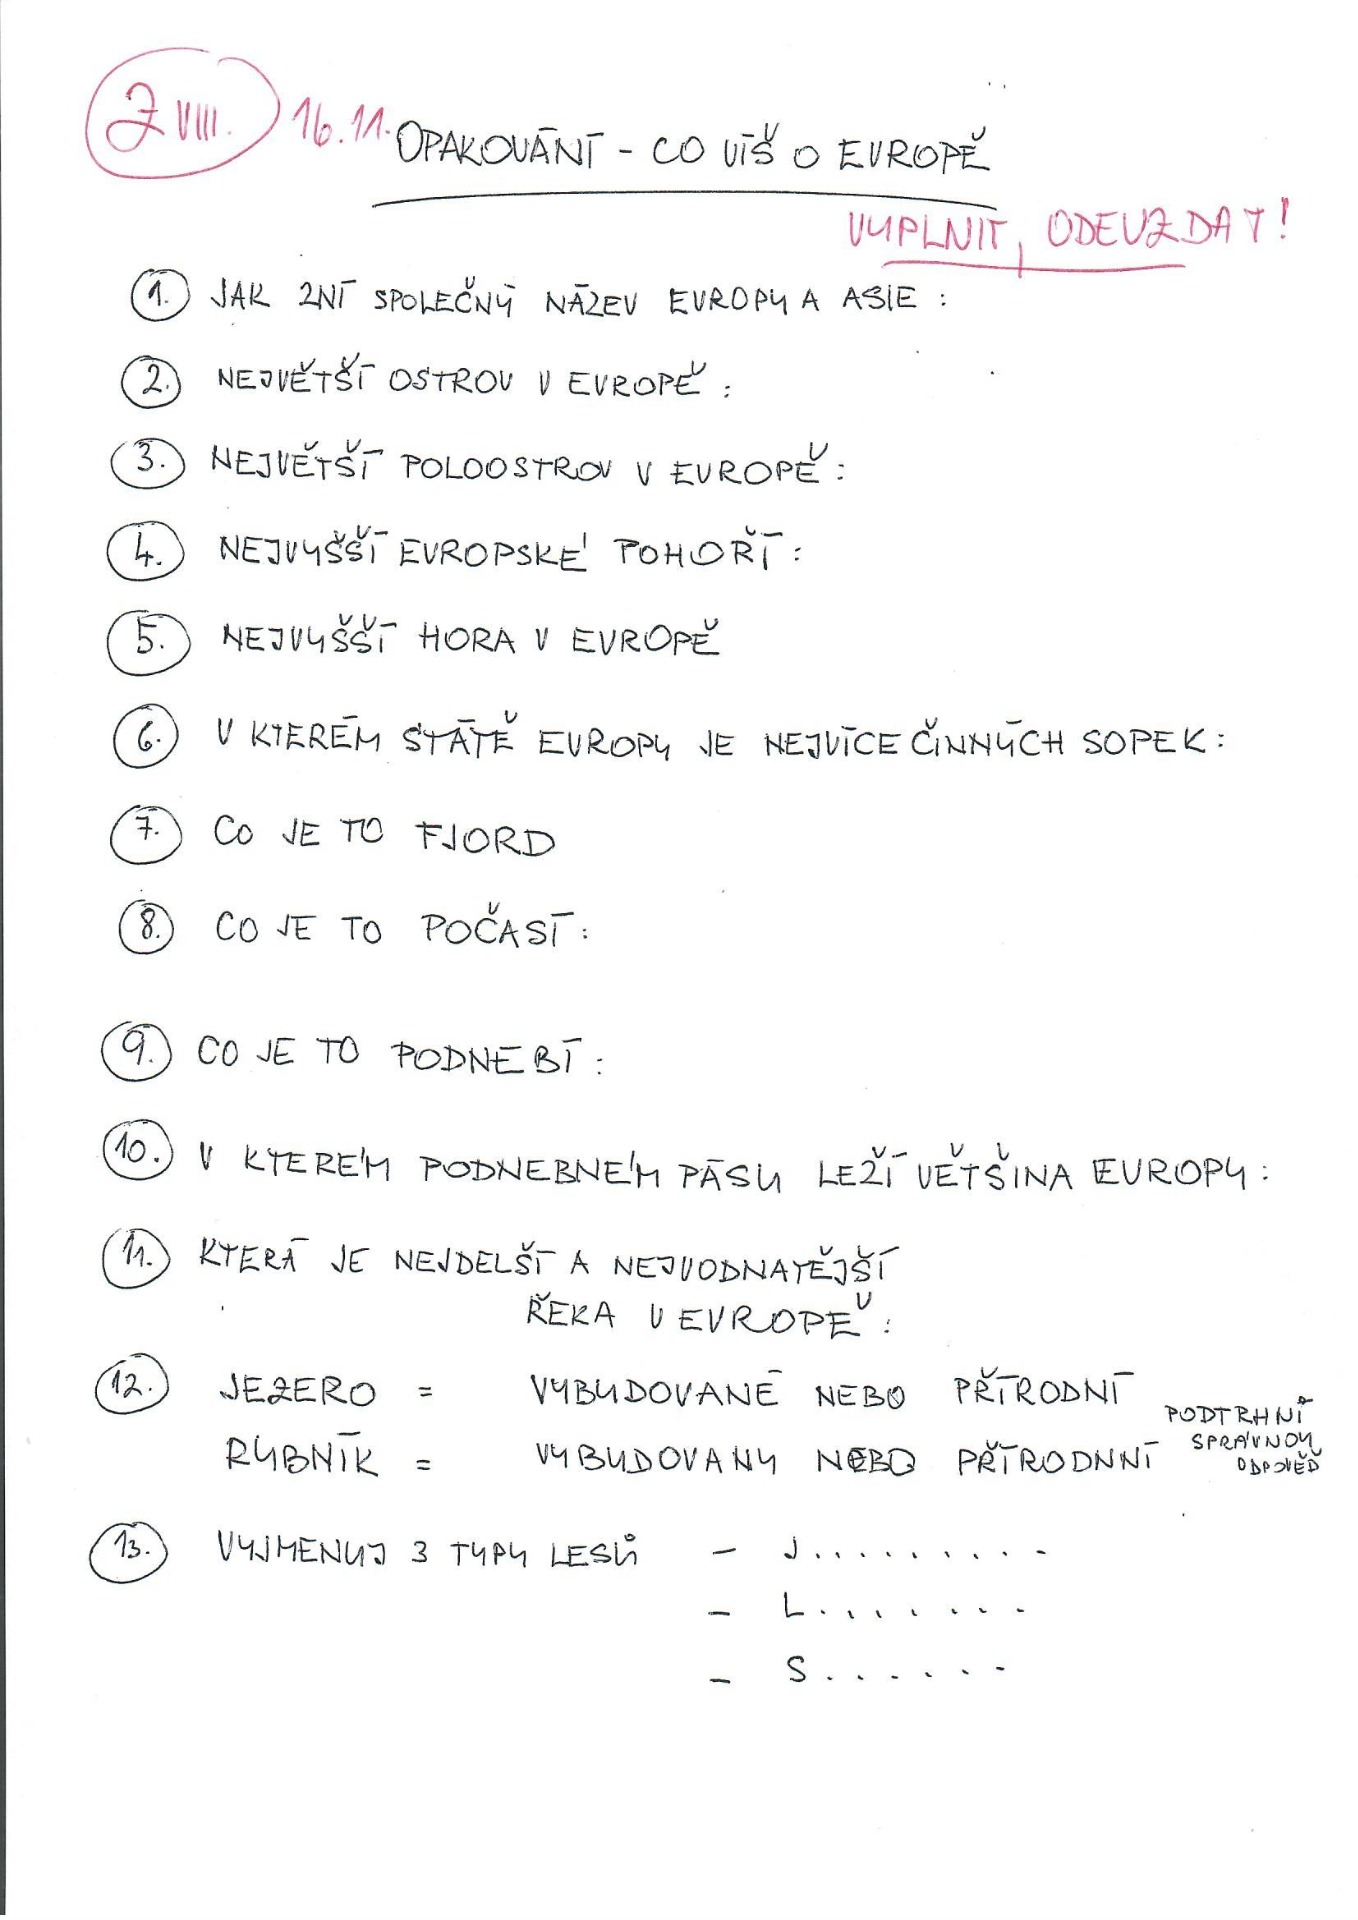 Z VIII. 16.11. OPAKOVÁNÍ - CO VÍŠ O EVROPĚ
VYPLNIT, ODEVZDAT!
1. JAK ZNÍ SPOLEČNÝ NÁZEV EVROPY A ASIE :
2. NEJVĚTŠÍ OSTROV V EVROPĚ :
3. NEJVĚTŠÍ POLOOSTROV V EVROPĚ :
4. NEJVYŠŠÍ EVROPSKÉ POHOŘÍ :
5. NEJVYŠŠÍ HORA V EVROPĚ
6. V KTERÉM STÁTĚ EVROPY JE NEJVÍCE ČINNÝCH SOPEK :
7. CO JE TO FJORD
8. CO JE TO POČASÍ :
9. CO JE TO PODNEBÍ :
10. V KTERÉM PODNEBNÉM PÁSU LEŽÍ VĚTŠINA EVROPY :
11. KTERÁ JE NEJDELŠÍ A NEJVODNATĚJŠÍ
ŘEKA V EVROPĚ :
12. JEZERO = VYBUDOVANÉ NEBO PŘÍRODNÍ
RYBNÍK = VYBUDOVANÝ NEBO PŘÍRODNNÍ
PODTRHNI
SPRÁVNOU
ODPOVĚĎ
13. VYJMENUJ 3 TYPY LESŮ - J.........
- L........
- S.......